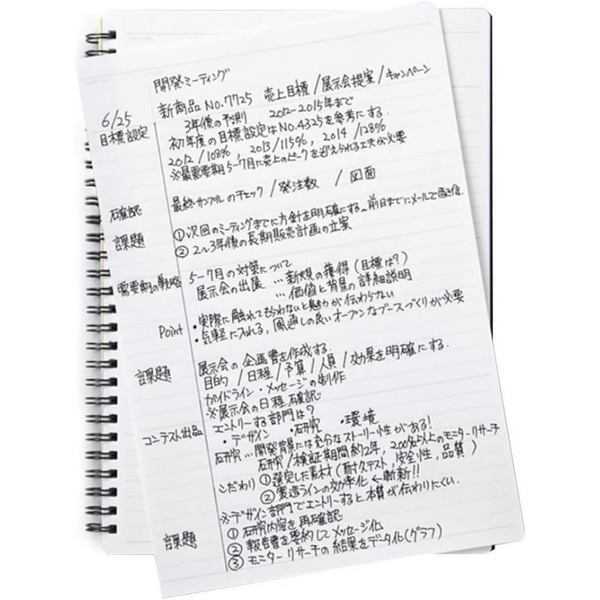 開発ミーティング
6/25 新商品 No.7725 売上目標/展示会提案/キャンペーン
目標設定 3年後の予測 2012-2015年まで
初年度の目標設定はNo.4325を参考にする.
2012/108%, 2013/115%, 2014/128%
※最需要期5-7月に売上のピークを迎えられる工夫が必要
確認 最終サンプルのチェック/発注数 /図面
課題 ①次回のミーティングまでに方針を明確にする…前日までにメールで返信
②2〜3年後の長期販売計画の立案
需要期の戦略 5-7月の対策について
展示会の出展 …新規の獲得(目標は?)
…価値と背景の詳細説明
Point ・実際に触れてもらわないと魅力が伝わらない
・気軽に入れる, 風通しの良いオープンなブースづくりが必要
課題 展示会の企画書を作成する.
目的/日程/予算/人員/効果を明確にする.
ガイドライン・メッセージの制作
※展示会の日程確認
コンテスト出品 エントリーする部門は?
・デザイン ・研究 ・環境
研究…開発背景には充分なストーリー性がある!
研究/検証期間約2年, 200名以上のモニターリサーチ
こだわり ①選定した素材(耐久テスト, 安全性, 品質)
②製造ラインの効率化 ←斬新!!
※デザイン部門でエントリーすると本質が伝わりにくい.
課題 ①研究内容を再確認
②報告書を要約してメッセージ化
③モニターリサーチの結果をデータ化(グラフ)